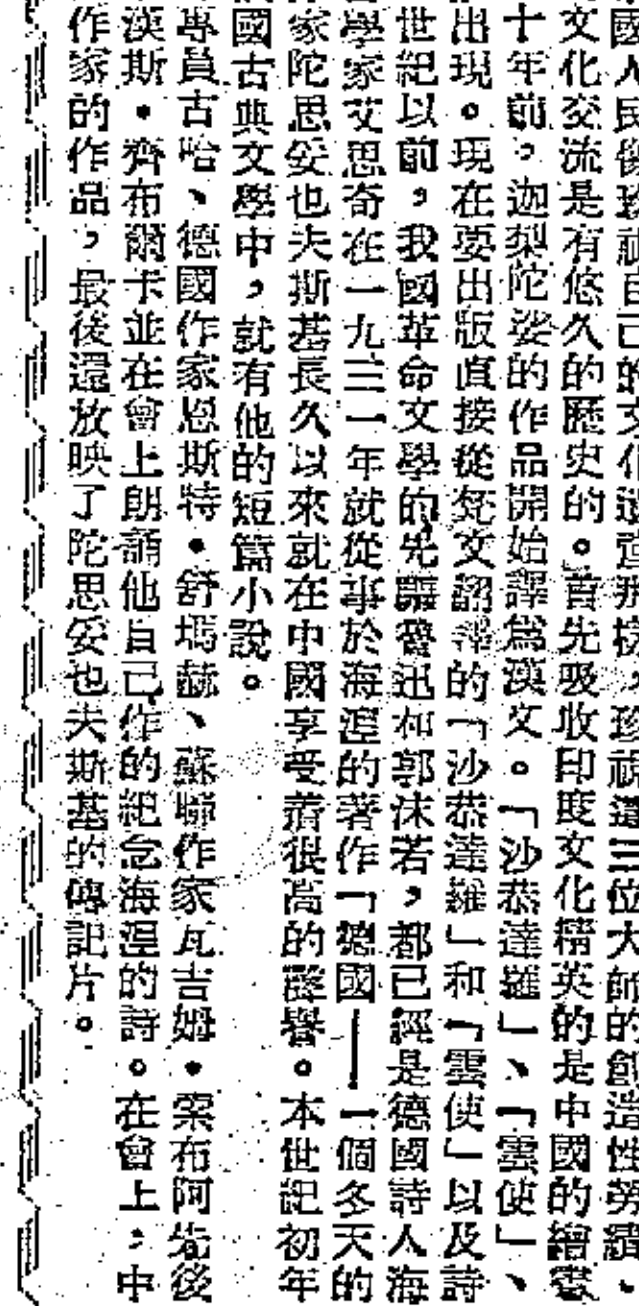 國人民像珍視自己的文化遺產那樣，珍視這三位大師的創造性勞績、
文化交流是有悠久的歷史的。首先吸收印度文化精英的是中國的繪畫
十年前，迦梨陀娑的作品開始譯爲漢文。「沙恭達羅」、「雲使」、
出現。現在要出版直接從梵文翻譯的「沙恭達羅」和「雲使」以及詩
世紀以前，我國革命文學的先驅魯迅和郭沫若，都已經是德國詩人海
學家艾思奇在一九三一年就從事於海涅的著作「德國——一個冬天的
家陀思妥也夫斯基長久以來就在中國享受着很高的聲譽。本世紀初年
國古典文學中，就有他的短篇小說。
專員古哈、德國作家恩斯特·舒瑪赫、蘇聯作家瓦吉姆·索布阿先後
漢斯·齊布爾卡並在會上朗誦他自己作的紀念海涅的詩。在會上，中
作家的作品，最後還放映了陀思妥也夫斯基的傳記片。